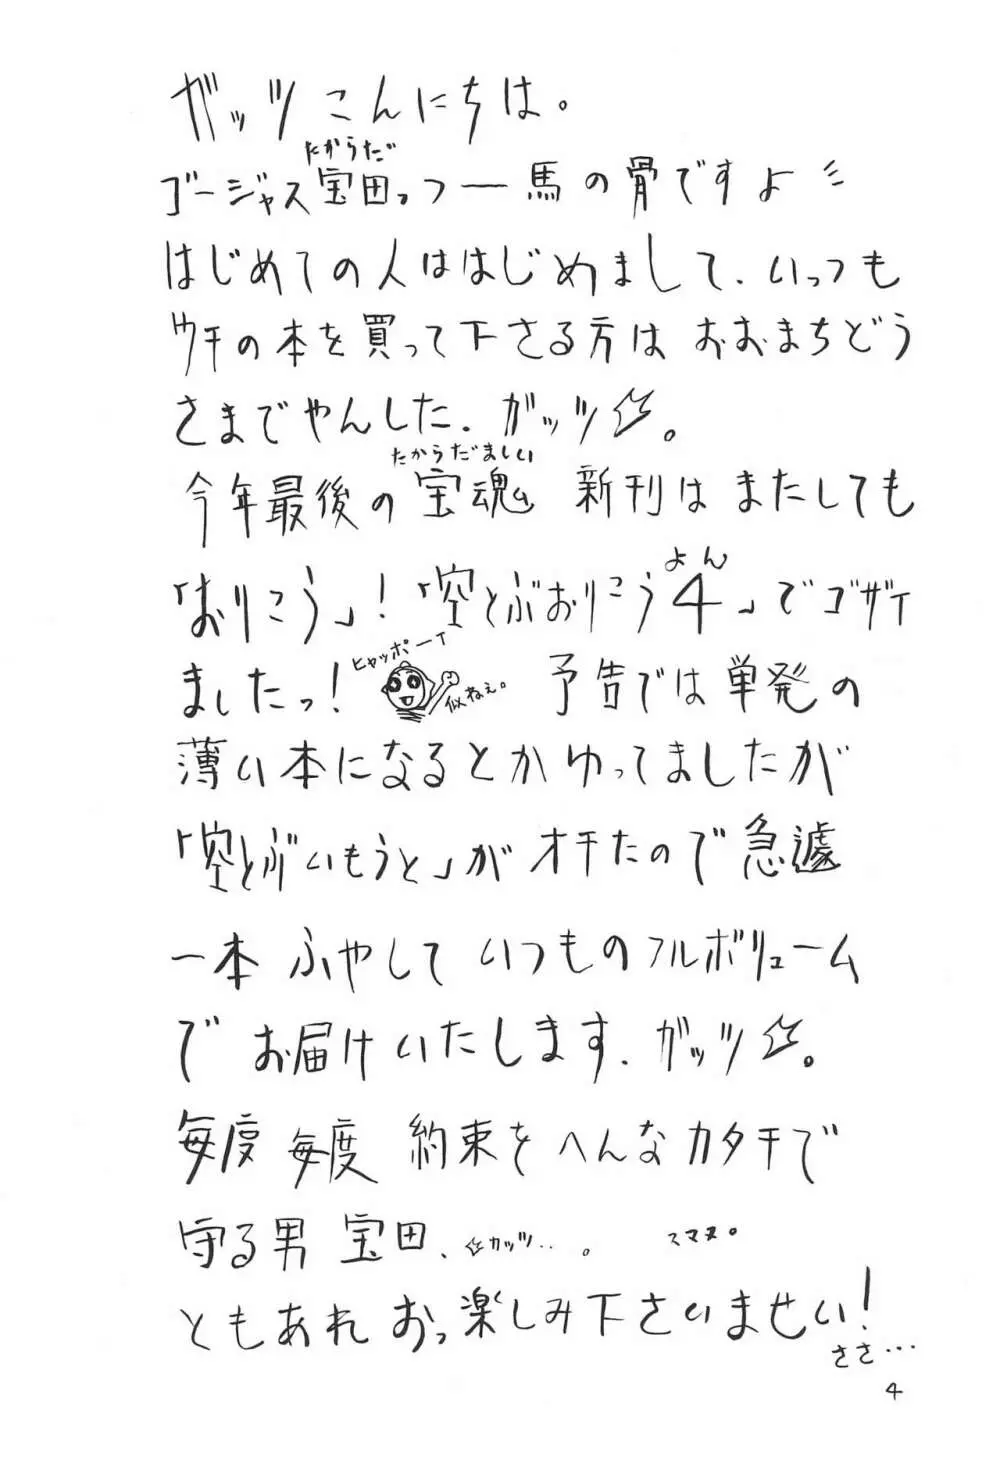 ガッツ こんにちは。
たからだ
ゴージャス宝田っつー馬の骨ですよ
はじめての人ははじめまして、いっつも
ウチの本を買って下さる方は おおまちどう
さまでやんした、ガッツ☆。
たからだましい
今年最後の宝魂 新刊は またしても
よん
「おりこう」!「空とぶおりこう4」でゴザイ
ヒャッポーイ
ましたっ! 似ねぇ。 予告では単発の
薄い本になるとかゆってましたが
「空とぶいもうと」がオチたので急遽
一本 ふやして いつものフルボリューム
で お届けいたします、ガッツ☆。
毎度 毎度 約束を へんなカタチで
守る男 宝田、☆ガッツ‥。 スマヌ。
ともあれ おっ楽しみ下さいませい!
ささ…
4